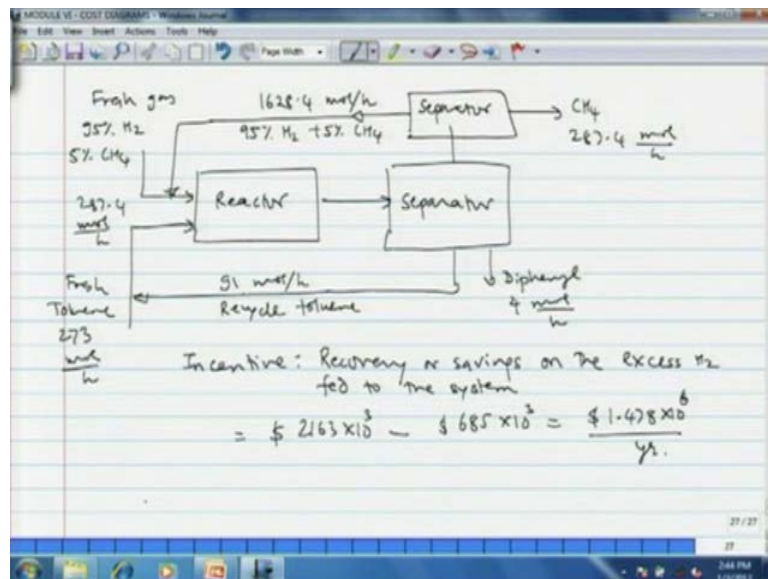 MODULE VI - COST DIAGRAMS - Windows Journal
File Edit View Insert Actions Tools Help
Page Width
Fresh gas
95% H2
5% CH4
287.4
mol
h
1628.4 mol/h
95% H2 + 5% CH4
Separator
CH4
287.4 mol
h
Reactor
Separator
Fresh
Toluene
273
mol
h
91 mol/h
Recycle toluene
Diphenyl
4 mol
h
Incentive: Recovery or savings on the excess H2
fed to the system
= $ 2163×10³ – $ 685×10³ = $ 1.478×10⁶
yr.
27 / 27
27
2:44 PM